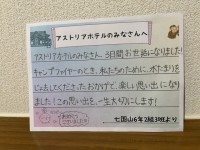 アストリアホテルのみなさんへ
アストリアホテルのみなさん 3日間お世話になりました!
キャンプファイヤーのとき、私たちのために、水たまりを
けしてくださったおかげで 楽しい思い出になり
ました!この思い出を一生大切にします!
七国山6年2組3班より